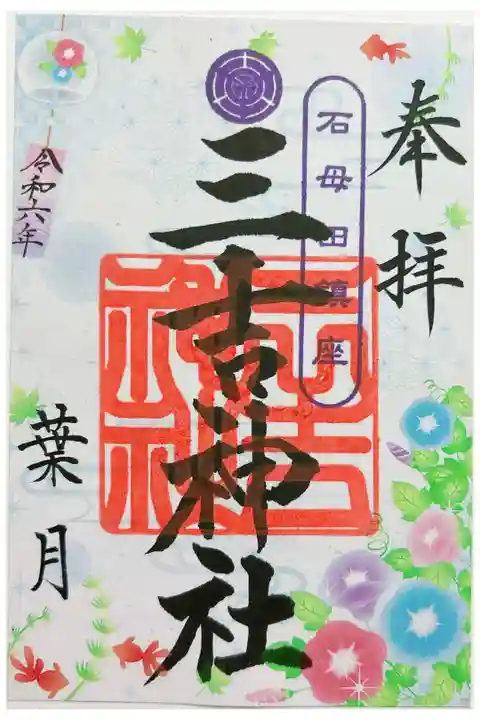 奉拝
石母田鎮座
三吉神社
三吉神社
令和六年
葉月